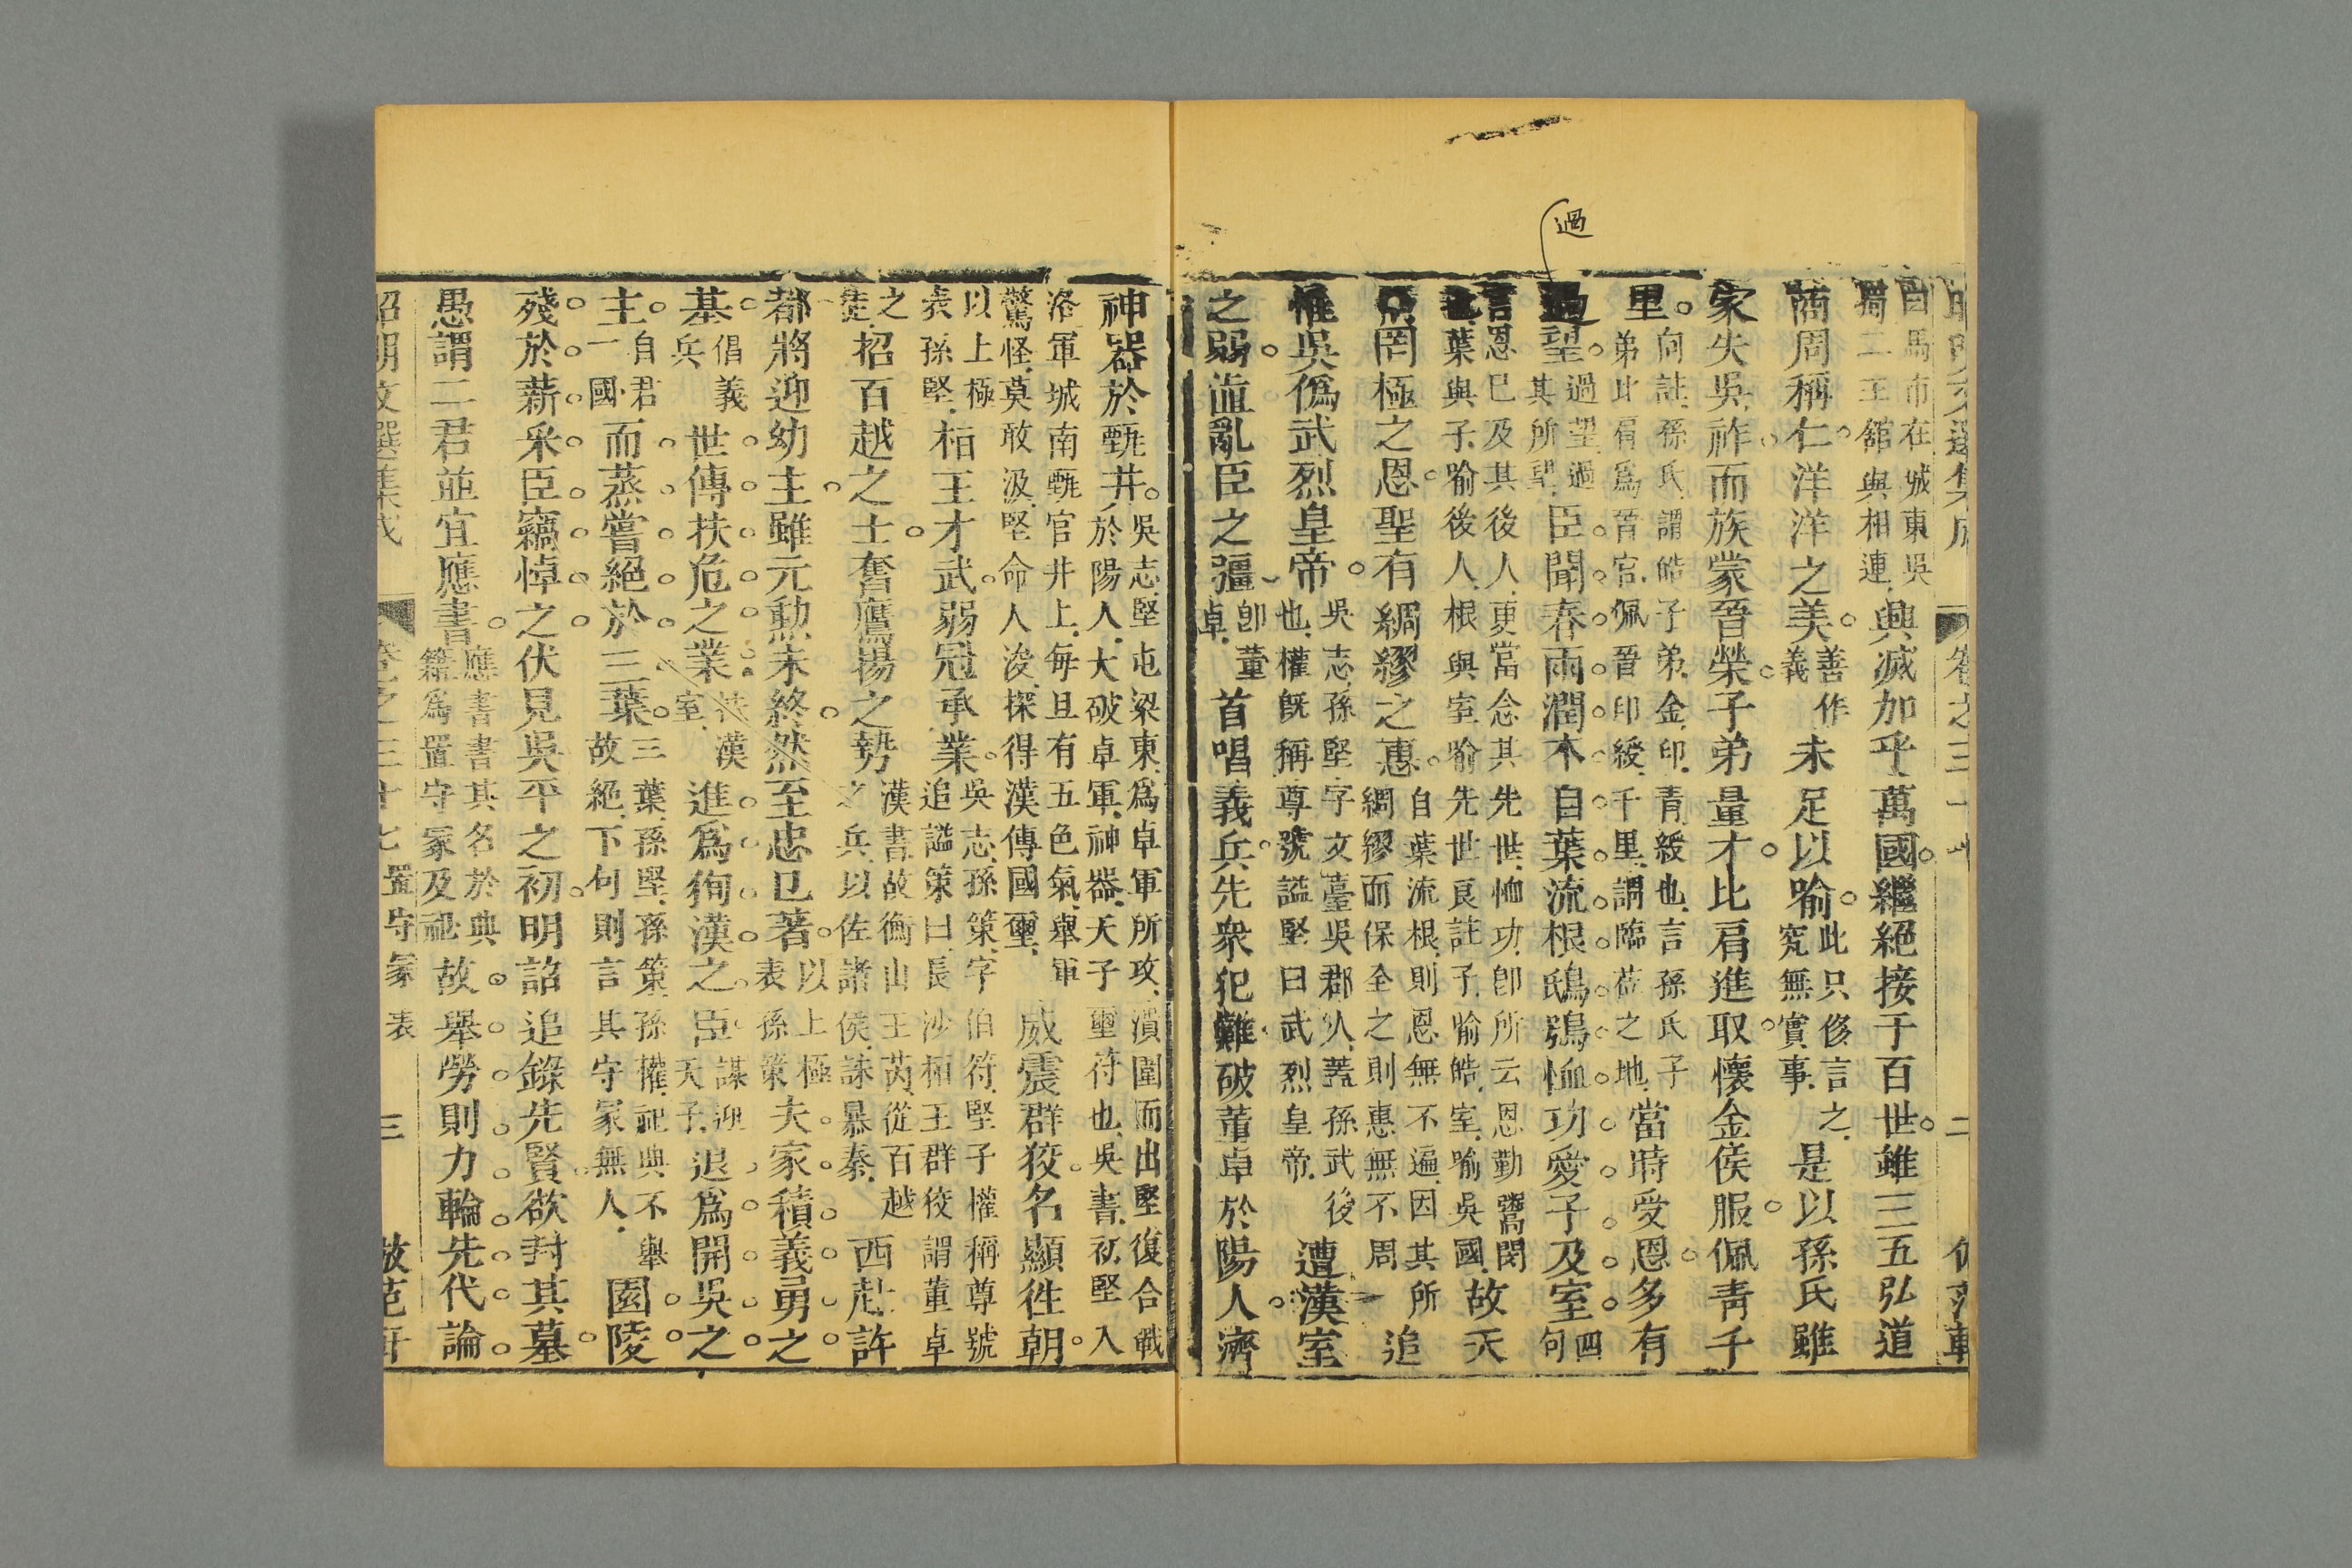 白馬市在城東吳
蜀二主館與相連
興滅加乎萬國繼絕接于百世雖三五弘道
商周稱仁洋洋之美
善作
義
未足以喻
此只侈言之
究無實事
是以孫氏雖
家失吳祚而族蒙晉榮子弟量才比肩進取懷金侯服佩青千
里
向註孫氏謂皓子弟金印青綬也言孫氏子
弟比肩爲晉官佩晉印綬千里謂臨莅之地
當時受恩多有
過
過望
過望過
其所望
臣聞春雨潤木自葉流根鴟鴞恤功愛子及室
四
句
言恩已及其後人更當念其先世恤功卽所云恩勤鬻閔
葉與子喻後人根與室喻先世良註子喻皓室喻吳國
故天
罔極之恩聖有綢繆之惠
自葉流根則恩無不遍因其所
綢繆而保全之則惠無不周
追
惟吳僞武烈皇帝
吳志孫堅字文臺吳郡人蓋孫武後
也權旣稱尊號謚堅曰武烈皇帝
遭漢室
之弱值亂臣之彊
卽董
卓
首唱義兵先衆犯難破董卓於陽人濟
神器於甄井
吳志堅屯梁東爲卓軍所攻潰圍而出堅復合戰
於陽人大破卓軍神器天子璽符也吳書初堅入
洛軍城南甄官井上每旦有五色氣舉軍
驚怪莫敢汲堅命人浚探得漢傳國璽
威震群狡名顯往朝
以上極
表孫堅
桓王才武弱冠承業
吳志孫策字伯符堅子權稱尊號
追謚策曰長沙桓王群狡謂董卓
之
徒
招百越之士奮鷹揚之勢
漢書故衡山王芮從百越
之兵以佐諸侯誅暴秦
西赴許
都將迎幼主雖元勳未終然至忠已著
以上極
表孫策
夫家積義勇之
基
倡義
兵
世傳扶危之業
扶漢
室
進爲徇漢之臣
謀迎
天子
退爲開吳之
主
自君
一國
而蒸嘗絕於三葉
三葉孫堅孫策孫權祀典不舉
故絕下句則言其守冢無人
園陵
殘於薪采臣竊悼之伏見吳平之初明詔追錄先賢欲封其墓
愚謂二君並宜應書
應書書其名於典
籍爲置守冢及祀
故舉勞則力輪先代論
昭明文選集成 卷之三十七 置守冢表 三 倣范軒